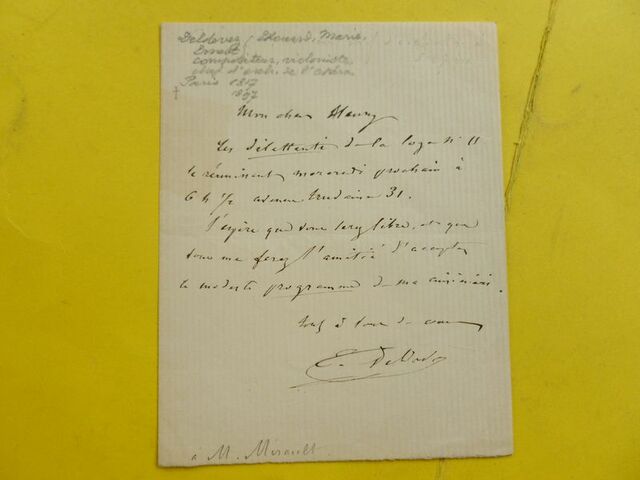 Deldevez (Edouard, Marie,
Ernest
compositeur, violoniste,
chef d'orch. de l'opéra
Paris 1817
† 1897
Mon cher Henry
Les dilettanti de la loge n° 11
se réunissent mercredi prochain à
6 h 1/2 avenue Trudaine 31.
J'espère que vous serez libre, et que
vous me ferez l'amitié d'accepter
le modeste programme de ma cuisinière.
tout à vous de cœur
E. Deldevez
à M. Mirault.